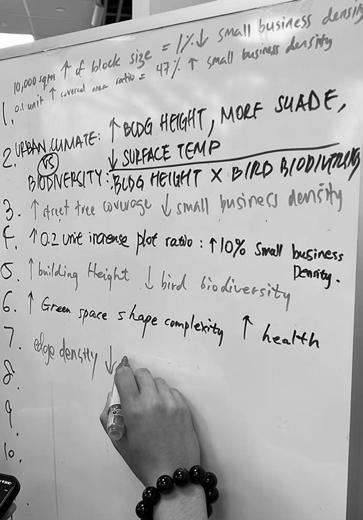 10,000 sqm ↑ of block size = 1% ↓ small business density
1. 0.1 unit ↑ covered area ratio = 47% ↑ small business density
2. URBAN CLIMATE: ↑ BLDG HEIGHT, MORE SHADE,
VS ↓ SURFACE TEMP
BIODIVERSITY: BLDG HEIGHT X BIRD BIODIVERSITY
3. ↑ street tree coverage ↓ small business density
4. ↑ 0.2 unit increase plot ratio : ↑ 10% small business
Density.
5. ↑ building Height ↓ bird biodiversity
6. ↑ Green space shape complexity ↑ health
7. edge density ↓
8.
9.
10.